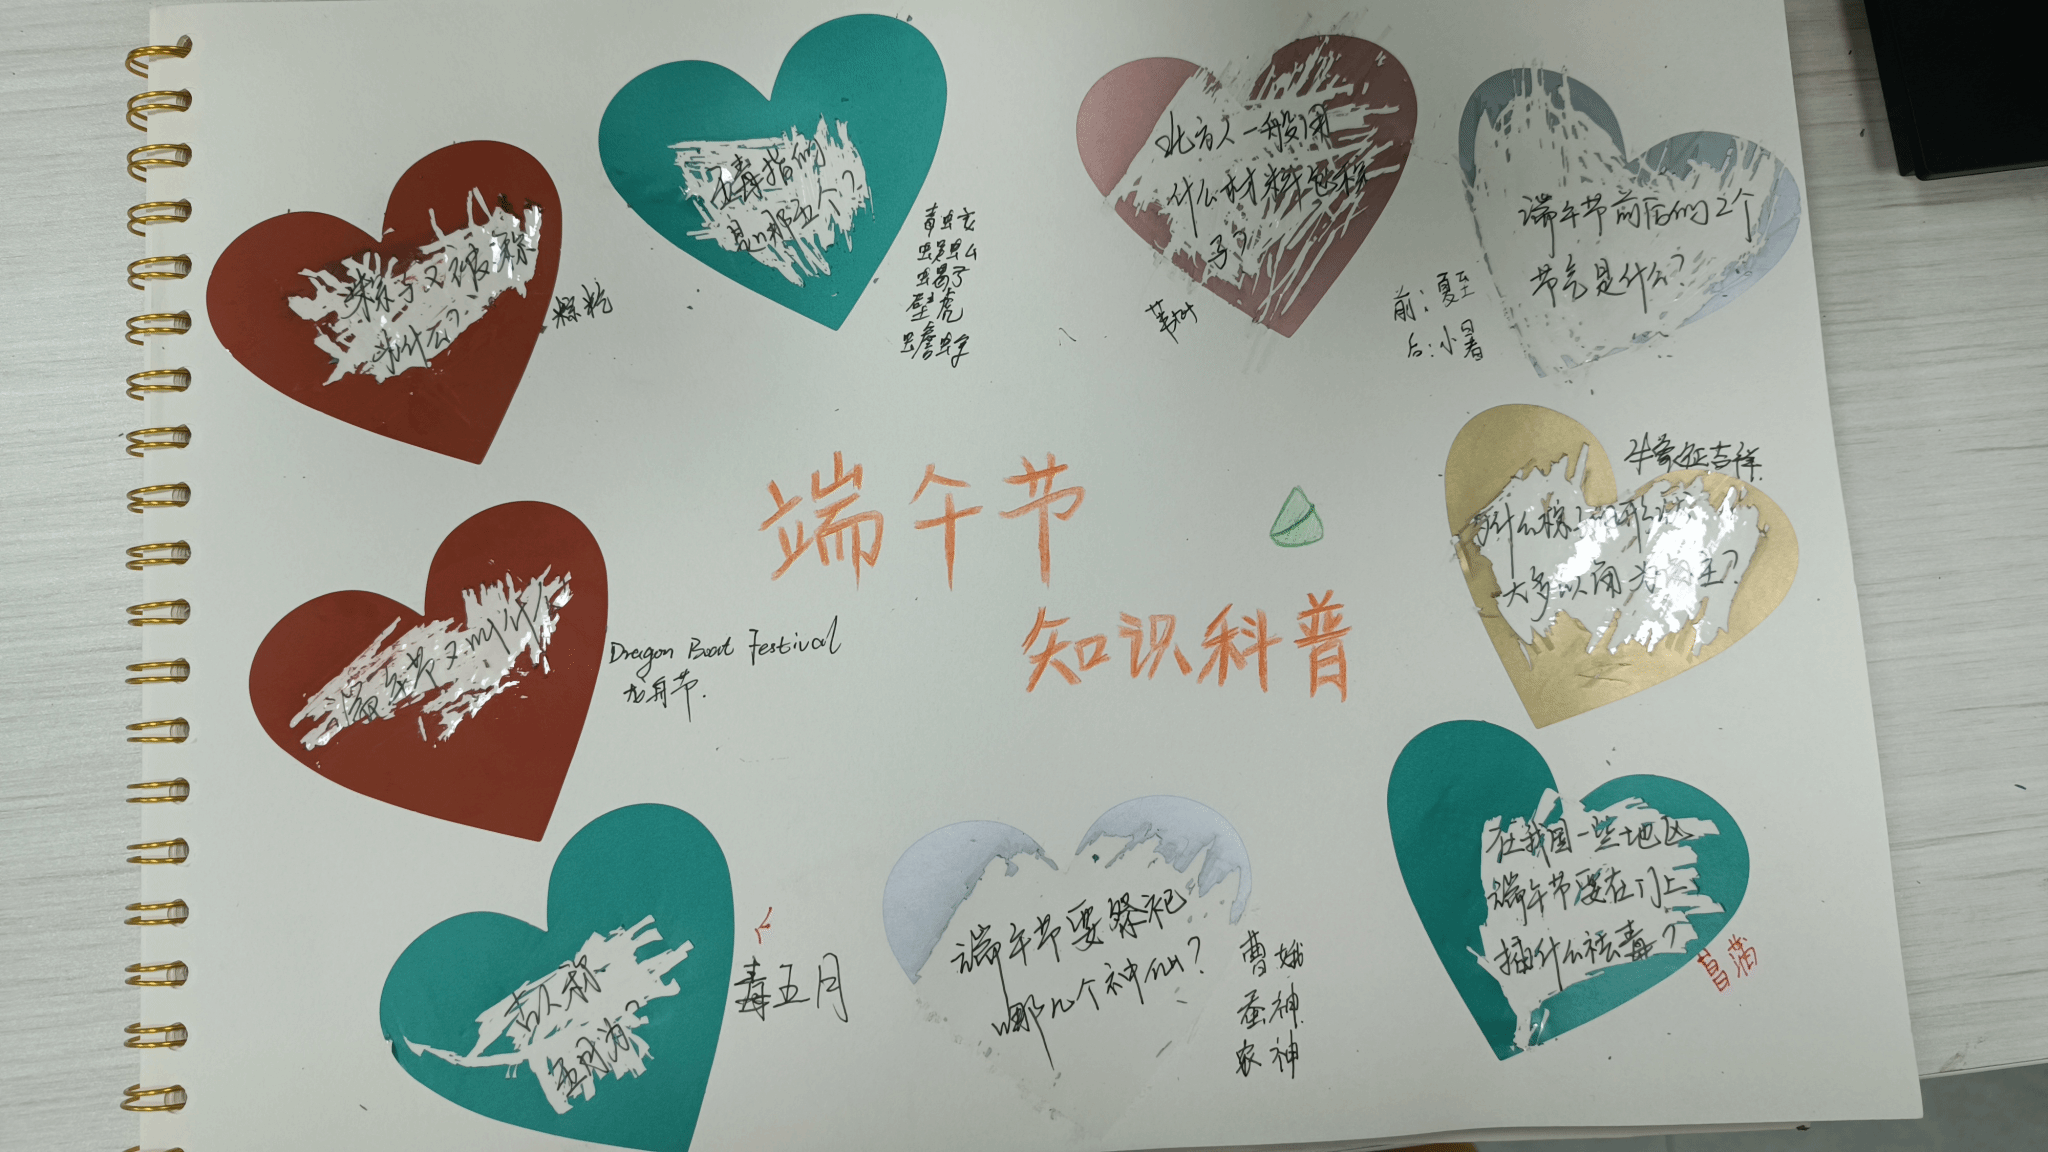 粽子又被称
为什么?
粽籺
五毒指的
是哪五个?
毒虫玄
蜈蚣
蝎子
壁虎
蟾蜍
北方人一般用
什么材料包粽
子?
苇叶
端午节前后的2个
节气是什么?
前:夏至
后:小暑
端午节
知识科普
牛象征吉祥
为什么粽子的形状
大多以角为主?
端午节又叫什么
Dragon Boat Festival
龙舟节.
古人称
五月为?
毒五月
端午节要祭祀
哪几个神仙?
曹娥
蚕神
农神
在我国一些地区
端午节要在门上
插什么祛毒?
菖蒲